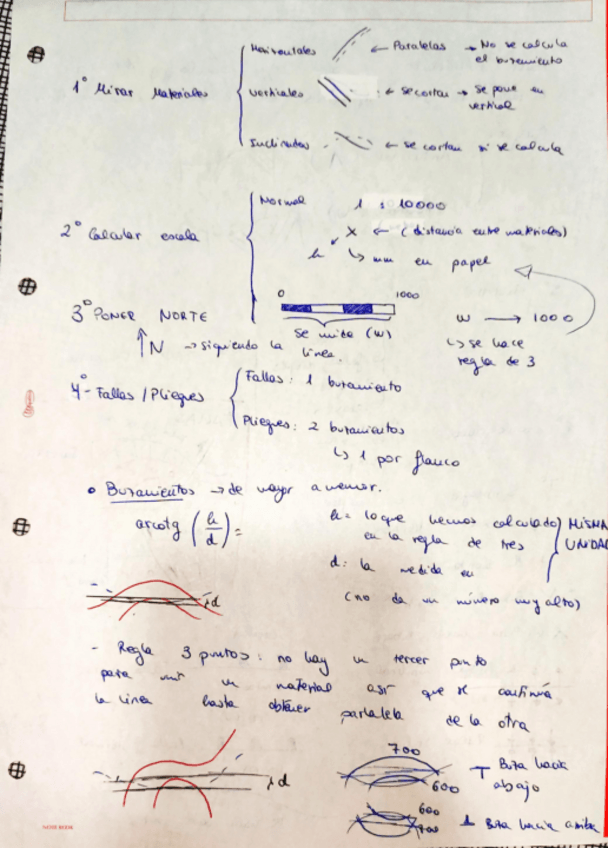 Horizontales ← Paralelas → No se calcula
el buzamiento
1º Mirar Materiales
Verticales ← se cortan → se pone en
vertical
Inclinados ← se cortan si se calcula
Normal 1 : 10000
2º Calcular escala
X ← (distancia entre materiales)
h ↳ mm en papel
0 1000
3º PONER NORTE
W → 1000
se mide (W)
↑N → siguiendo la línea.
↳ se hace
regla de 3
4º - Fallas / Pliegues
Fallas: 1 buzamiento
Pliegues: 2 buzamientos
↳ 1 por flanco
• Buzamientos → de mayor a menor.
arcotg (h/d) =
h = lo que hemos calculado
en la regla de tres
MISMA
UNIDAD
d: la medida en
(no da un número muy alto)
d
- Regla 3 puntos: no hay un tercer punto
para unir un material así que se continúa
la línea hasta obtener paralela de la otra
d
700
600
⊤ Buza hacia
abajo
600
700
⊥ Buza hacia arriba
NOTE BOOK